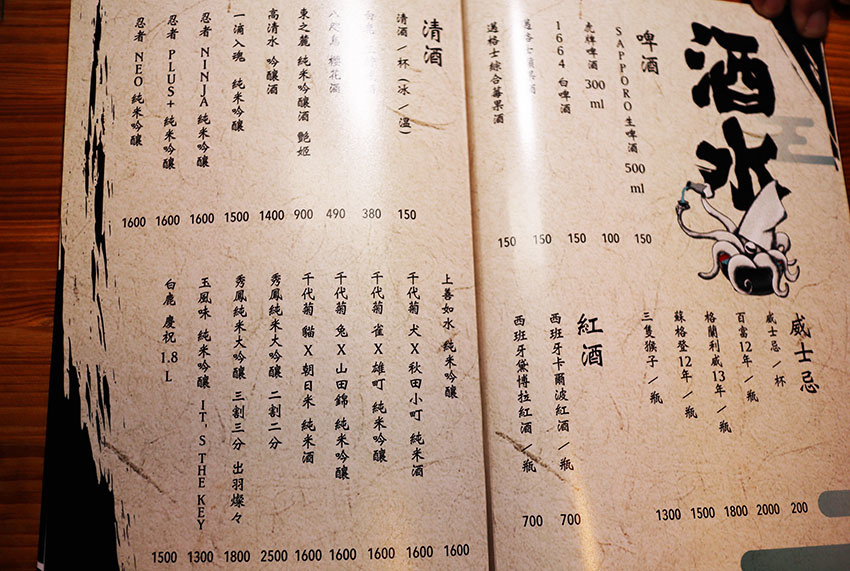 酒水
啤酒
SAPPORO生啤酒 500 ml
150
虎牌啤酒 300 ml
100
1664 白啤酒
150
150
邁格士綜合莓果酒
150
威士忌
威士忌／杯
200
百富12年／瓶
2000
格蘭利威13年／瓶
1800
蘇格登12年／瓶
1500
三隻猴子／瓶
1300
紅酒
西班牙卡爾波紅酒／瓶
700
西班牙黛博拉紅酒／瓶
700
清酒
清酒／杯（冰／溫）
150
380
櫻花酒
490
東之麓 純米吟釀酒 艷姬
900
高清水 吟釀酒
1400
一滴入魂 純米吟釀
1500
忍者 NINJA 純米吟釀
1600
忍者 PLUS+ 純米吟釀
1600
忍者 NEO 純米吟釀
1600
上善如水 純米吟釀
1600
千代菊 犬X秋田小町 純米酒
1600
千代菊 雀X雄町 純米吟釀
1600
千代菊 兔X山田錦 純米吟釀
1600
千代菊 貓X朝日米 純米酒
1600
秀鳳純米大吟釀 二割二分
2500
秀鳳純米大吟釀 三割三分 出羽燦々
1800
玉風味 純米吟釀 IT'S THE KEY
1300
白鹿 慶祝 1.8 L
1500